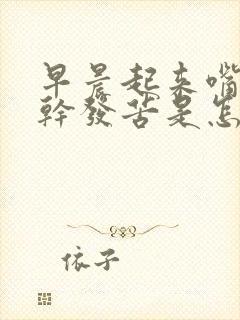 早晨起来嘴
幹發苦是怎
依子